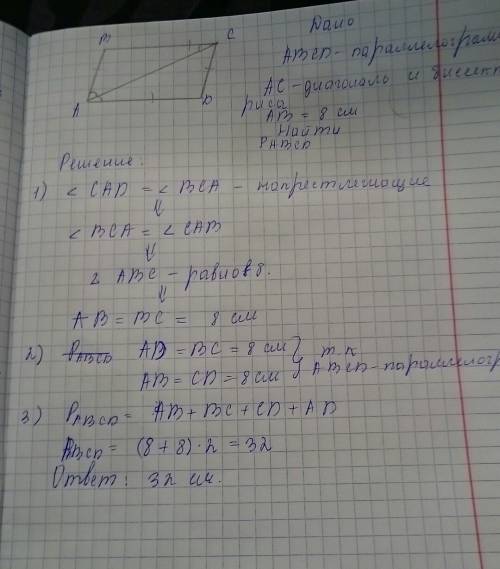 B
C
A
D
Дано
ABCD - параллелограмм
AC - диагональ и биссект
риса
AB = 8 см
Найти
P ABCD
Решение:
1) < CAD = < BCA - напрестлежащие
⇓
< BCA = < CAB
⇓
ABC - равноб.
⇓
AB = BC = 8 см
2) P ABCD AD = BC = 8 см } т.к
AB = CD = 8 см } ABCD - параллелогр
3) P ABCD = AB + BC + CD + AD
PABCD = (8 + 8) · 2 = 32
Ответ: 32 см.